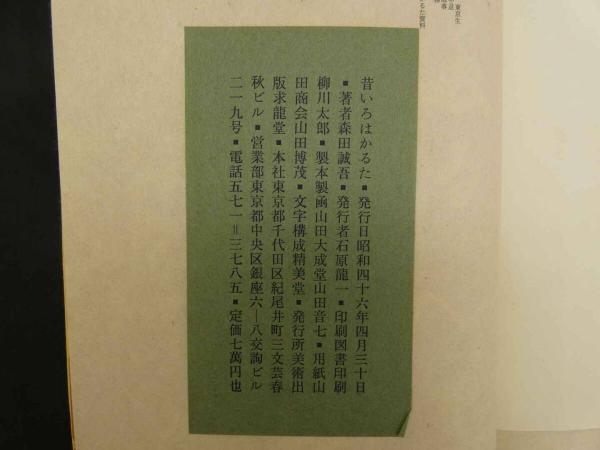 昔いろはかるた■発行日昭和四十六年四月三十日
■著者森田誠吾■発行者石原龍一■印刷図書印刷
柳川太郎■製本製函山田大成堂山田音七■用紙山
田商会山田博茂■文字構成精美堂■発行所美術出
版求龍堂■本社東京都千代田区紀尾井町三文芸春
秋ビル■営業部東京都中央区銀座六―八交詢ビル
二一九号■電話五七一＝三七八五■定価七萬円也